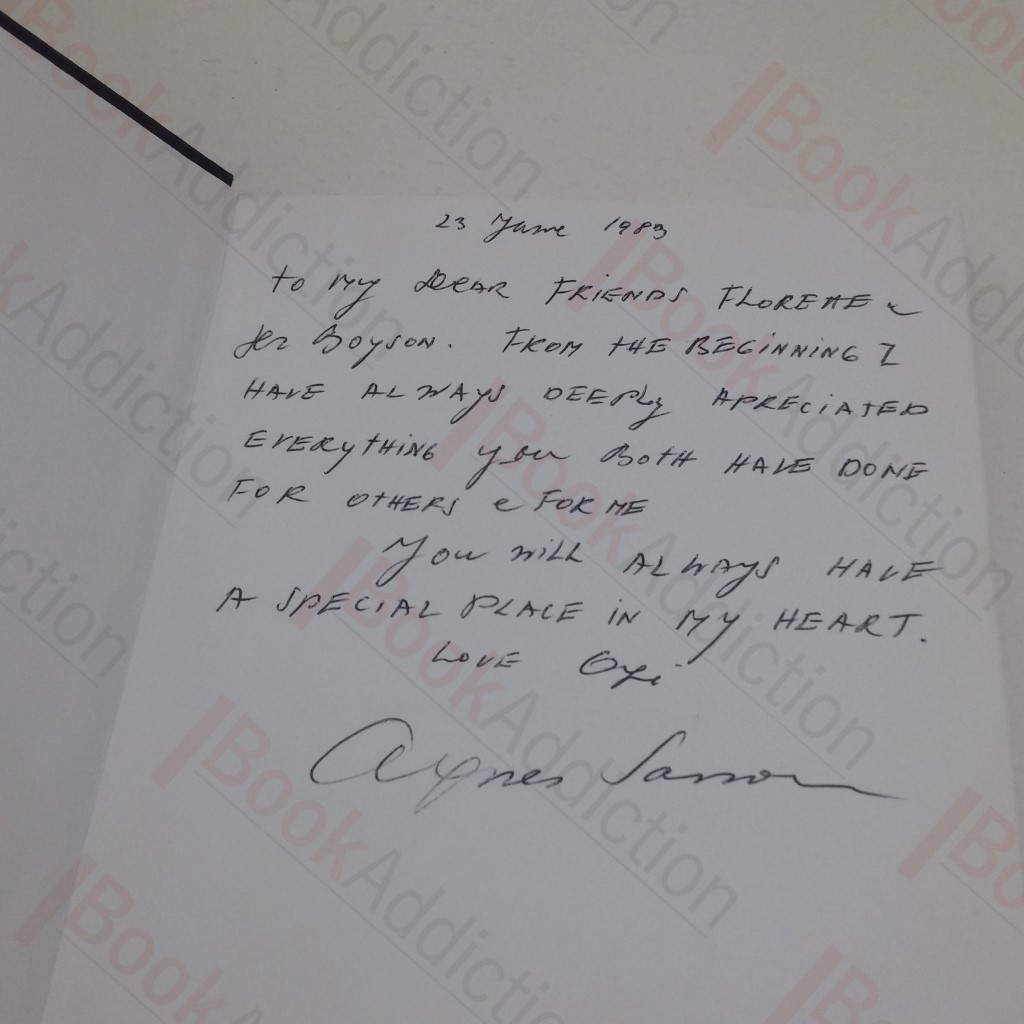 23 June 1983
to my DEAR FRIENDS FLORENE &
Boyson. FROM tHE BEGINNING I
HAVE ALWAYS DEEPly APRECIATED
EVERYtHING you BotH HAVE DONE
FOR OtHERS & FOR ME
You will ALWAYS HAVE
A SPECIAL PLACE IN MY HEART.
LOVE
Agnes Sanson
BookAddiction